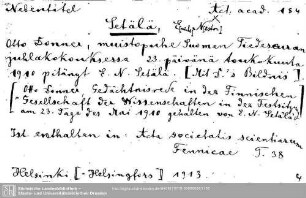 Nebentitel Act. acad. 154
Setälä, E[mil] N[estor]
Otto Donner, muistopuhe Suomen Tiedeseuran
juhlakokouksessa 23 päivänä toukokuuta
1910 pitänyt E. N. Setälä. [Mit D.'s Bildnis].
[Otto Donner, Gedächtnisrede in der Finnischen
Gesellschaft der Wissenschaften in der Festsitzg
am 23. Tage des Mai 1910 gehalten von E. N. Setälä]
Ist enthalten in: Acta societatis scientiarum
Fennicae T. 38
Helsinki [-Helsingfors] 1913. 4